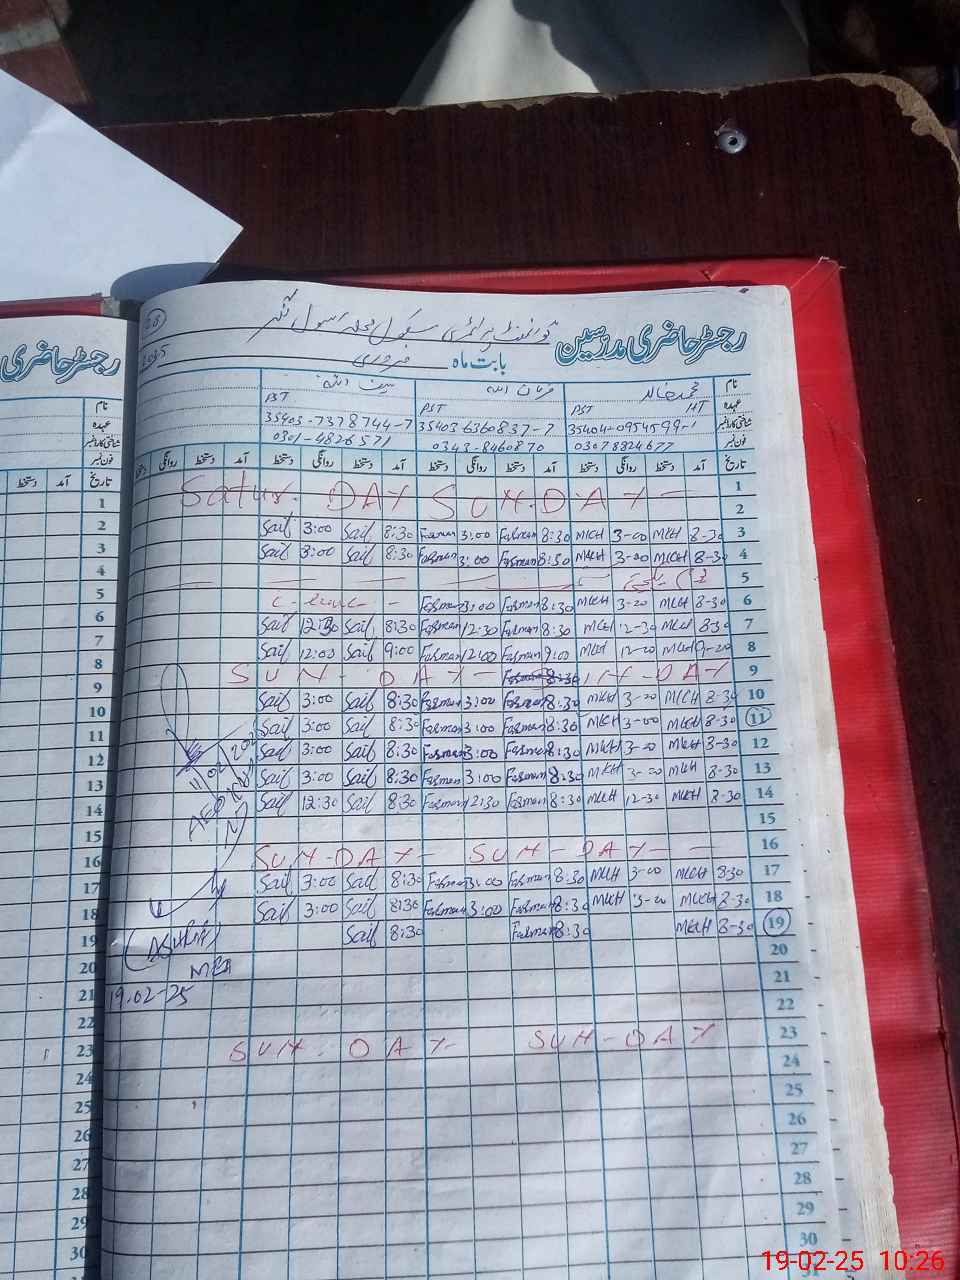 رجسٹر حاضری مدرسین گورنمنٹ پرائمری سکول محلہ رسول نگر 28
بابت ماہ فروری 2025
نام محمد خالد فرمان اللہ سیف اللہ
عہدہ PST HT PST PST
شناختی کارڈ نمبر 35404-0954599-1 35403 6360837-7 35403-7378744-7
فون نمبر 03078824677 0343-8460870 0301-4826571
تاریخ آمد دستخط روانگی دستخط آمد دستخط روانگی دستخط آمد دستخط روانگی دستخط آمد دستخط روانگی دستخط
1
Satur. DAY SUN.DAY -
2
Saif 3:00 Saif 8:30 Farman 3:00 Farman 8:30 MKH 3-00 MKH 8-30 3
Saif 3:00 Saif 8:30 Farman 3:00 Farman 8:30 MKH 3-00 MKH 8-30 4
5
C-leave - Farman 3:00 Farman 8:30 MKH 3-00 MKH 8-30 6
Saif 12:30 Saif 8:30 Farman 12:30 Farman 8:30 MKH 12-30 MKH 8-30 7
Saif 12:00 Saif 9:00 Farman 12:00 Farman 9:00 MKH 12-00 MKH 9-00 8
SUN - DAY - SUN-DAY 9
Saif 3:00 Saif 8:30 Farman 3:00 Farman 8:30 MKH 3-00 MKH 8-30 10
Saif 3:00 Saif 8:30 Farman 3:00 Farman 8:30 MKH 3-00 MKH 8-30 11
Saif 3:00 Saif 8:30 Farman 3:00 Farman 8:30 MKH 3-00 MKH 8-30 12
Saif 3:00 Saif 8:30 Farman 3:00 Farman 8:30 MKH 3-00 MKH 8-30 13
Saif 12:30 Saif 8:30 Farman 12:30 Farman 8:30 MKH 12-30 MKH 8-30 14
15
SUN-DAY - SUN - DAY - - 16
Saif 3:00 Saif 8:30 Farman 3:00 Farman 8:30 MKH 3-00 MKH 8-30 17
Saif 3:00 Saif 8:30 Farman 3:00 Farman 8:30 MKH 3-00 MKH 8-30 18
Saif 8:30 Farman 8:30 MKH 8-30 19
20
21
22
SUN - DAY - SUN-DAY 23
24
25
26
27
28
29
30
11/02/2025
AEO
MEA
19.02-25
رجسٹر حاضری
نام
عہدہ
شناختی کارڈ نمبر
فون نمبر
تاریخ آمد دستخط
1
2
3
4
5
6
7
8
9
10
11
12
13
14
15
16
17
18
19
20
21
22
23
24
25
26
27
28
29
30
19-02-25 10:26